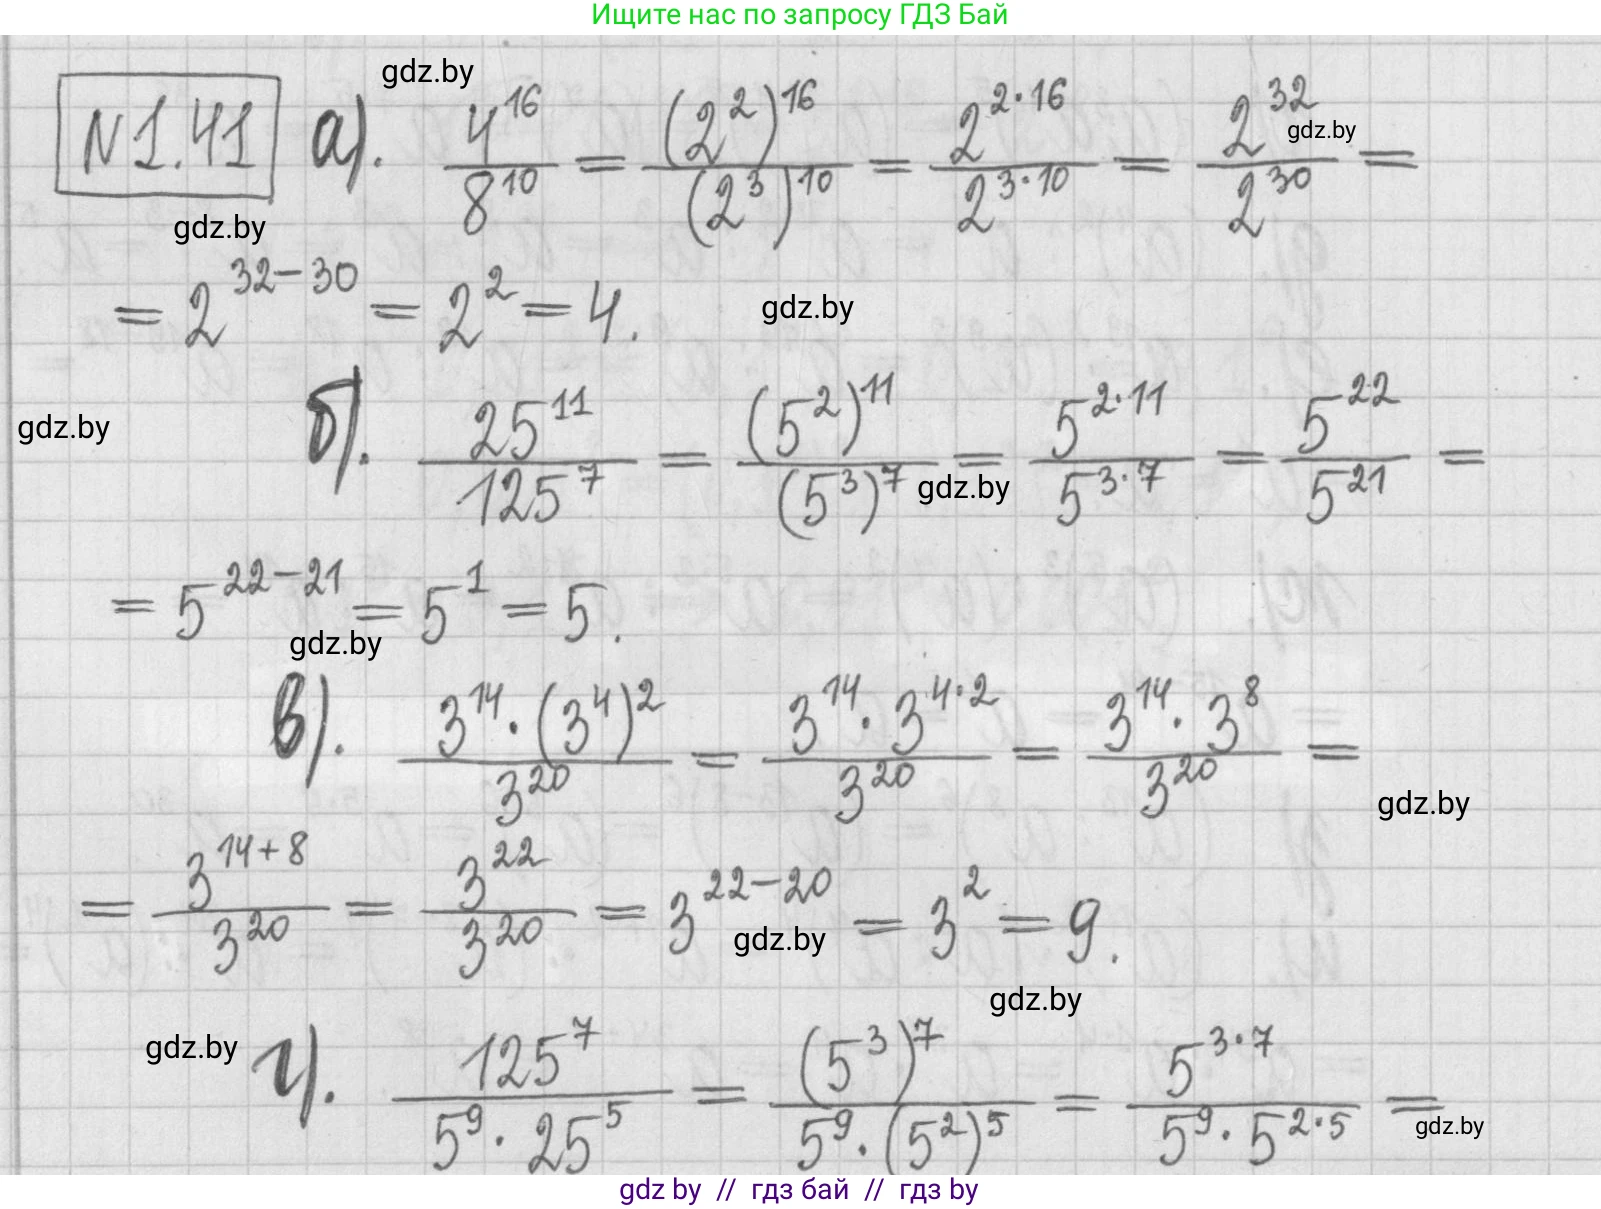 Ищите нас по запросу ГДЗ Бай
gdz.by
N1.41 а). 4^16/8^10 = (2^2)^16/(2^3)^10 = 2^(2·16)/2^(3·10) = 2^32/2^30 =
gdz.by
gdz.by
= 2^(32-30) = 2^2 = 4.
gdz.by
б). 25^11/125^7 = (5^2)^11/(5^3)^7 = 5^(2·11)/5^(3·7) = 5^22/5^21 =
gdz.by
gdz.by
= 5^(22-21) = 5^1 = 5.
gdz.by
в). 3^14·(3^4)^2/3^20 = 3^14·3^(4·2)/3^20 = 3^14·3^8/3^20 =
gdz.by
= 3^(14+8)/3^20 = 3^22/3^20 = 3^(22-20) = 3^2 = 9.
gdz.by
gdz.by
gdz.by
г). 125^7/(5^9·25^5) = (5^3)^7/(5^9·(5^2)^5) = 5^(3·7)/(5^9·5^(2·5)) =
gdz.by
gdz by // гдз бай // гдз by